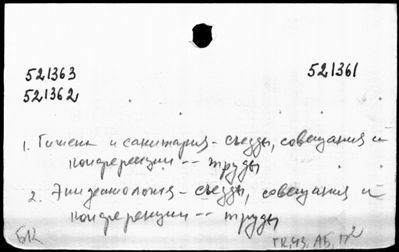 521363 521361
521362
1. Гигиена и санитария - съезды, совещания и
конференции -- труды
2. Эпидемиология - съезды, совещания и
конференции -- труды
БК